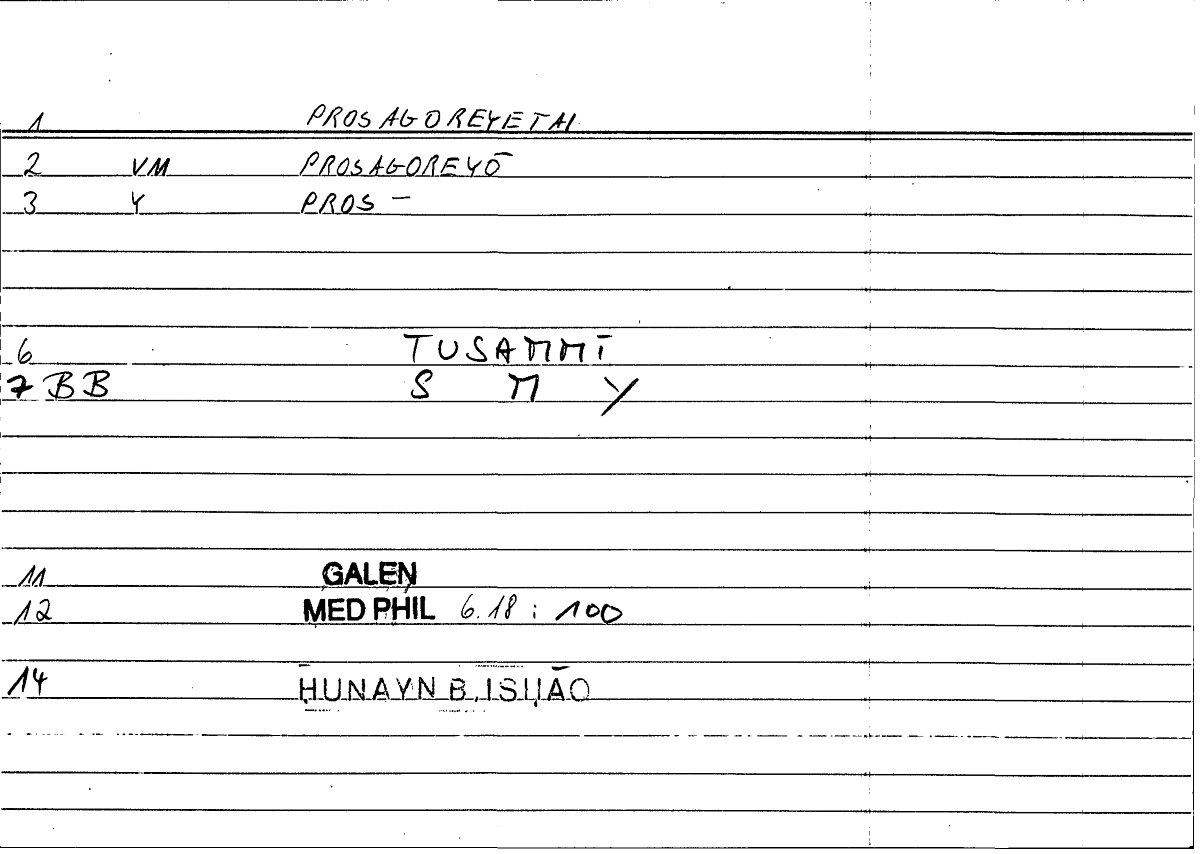 1 PROSAGOREYETAI
2 VM PROSAGOREYŌ
3 Y PROS –
6 TUSAMMĪ
7 BB S M Y
11 GALEN
12 MED PHIL 6.18 : 100
14 ḤUNAYN B. ISḤĀQ